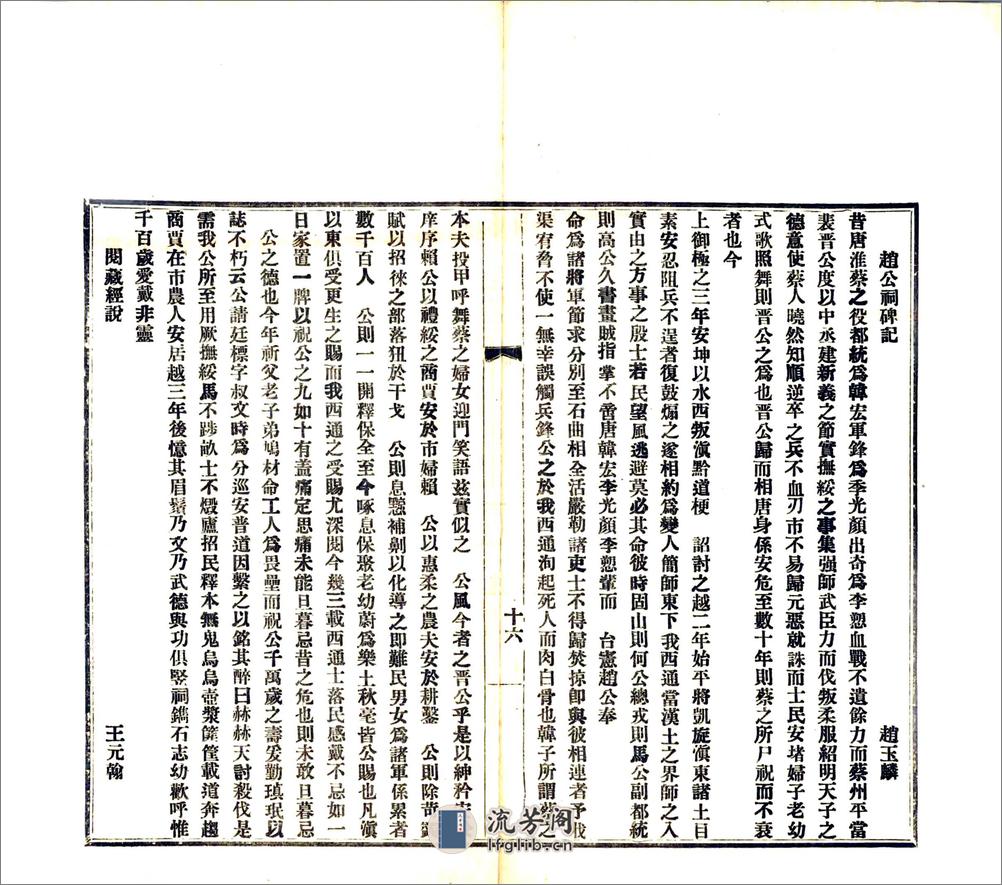 趙公祠碑記　趙玉麟
昔唐淮蔡之役都統爲韓宏軍鋒爲季光顏出奇爲李愬血戰不遺餘力而蔡州平當
裴晉公度以中丞建新義之節實撫綏之事集强師武臣力而伐叛柔服紹明天子之
德意使蔡人曉然知順逆卒之兵不血刃市不易歸元惡就誅而士民安堵婦子老幼
式歌照舞則晉公之爲也晉公歸而相唐身係安危至數十年則蔡之所尸祝而不衰
者也今
上御極之三年安坤以水西叛滇黔道梗　詔討之越二年始平將凱旋滇東諸土目
素安忍阻兵不逞者復鼓煽之遂相約爲變人簡師東下我西通當漢土之界師之入
實由之方事之殷士若民望風逃避莫必其命彼時固山則何公總戎則馬公副都統
則高公久書畫賊指掌不啻唐韓宏李光顏李愬輩而　台憲趙公奉
命爲諸將軍節求分別至石曲相全活嚴勒諸吏士不得歸焚掠卽與彼相連者予
渠宥脅不使一無幸誤觸兵鋒公之於我西通洵起死人而肉白骨也韓子所謂
十六
本夫投甲呼舞蔡之婦女迎門笑語兹實似之　公風今者之晉公乎是以紳矜
庠序賴公以禮綏之商賈安於市婦賴　公以惠柔之農夫安於耕鑿　公則除苛
賦以招徠之部落狃於干戈　公則息懸補劓以化導之即難民男女爲諸軍係累者
數千百人　公則一一開釋保全至今啄息保聚老幼蔚爲樂土秋毫皆公賜也凡滇
以東俱受更生之賜而我西通之受賜尤深閱今幾三載西通士落民感戴不忘如一
日家置一牌以祝公之九如十有盖痛定思痛未能旦暮忌昔之危也則未敢旦暮忌
公之德也今年祈父老子弟鳩材命工人爲畏壘而祝公千萬歲之壽爰勤瑱珉以
誌不朽云公請廷標字叔文時爲分巡安普道因繫之以銘其辭曰赫赫天討殺伐是
需我公所至用厥撫綏馬不踐畝士不燬廬招民釋本無鬼烏烏壺漿篚筐載道奔趨
商賈在市農人安居越三年後憶其眉鬚乃文乃武德與功俱豎祠鐫石志幼歡呼惟
千百歲愛戴非靈
閱藏經說　王元翰
流芳阁
lfglib.cn